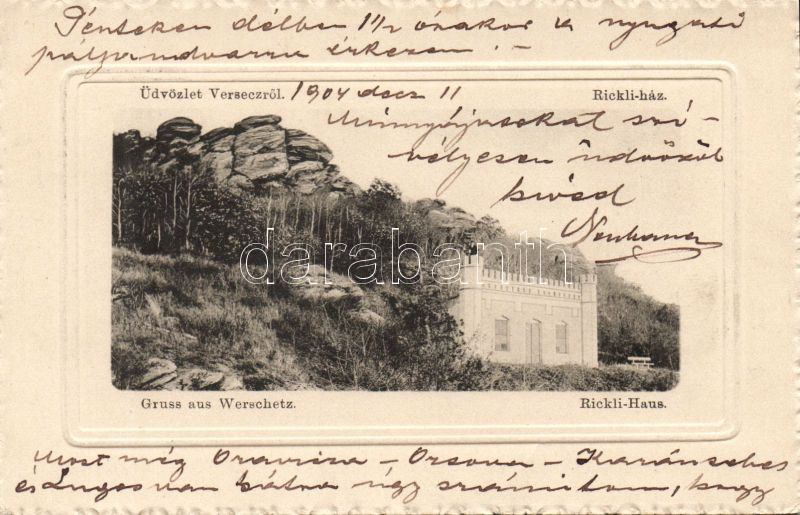 Pénteken délben 1 1/2 órakor a nyugati
pályaudvarra érkezem. –
Üdvözlet Verseczről. 1904 decz 11 Rickli-ház.
Mnnyájusokat szí-
vélyesen üdvözöl
híved
Neuhauer
darabanth.com
Gruss aus Werschetz. Rickli-Haus.
Most még Oravicza – Orsova – Karánsebes
és Lugos van hátra úgy számítom, hogy